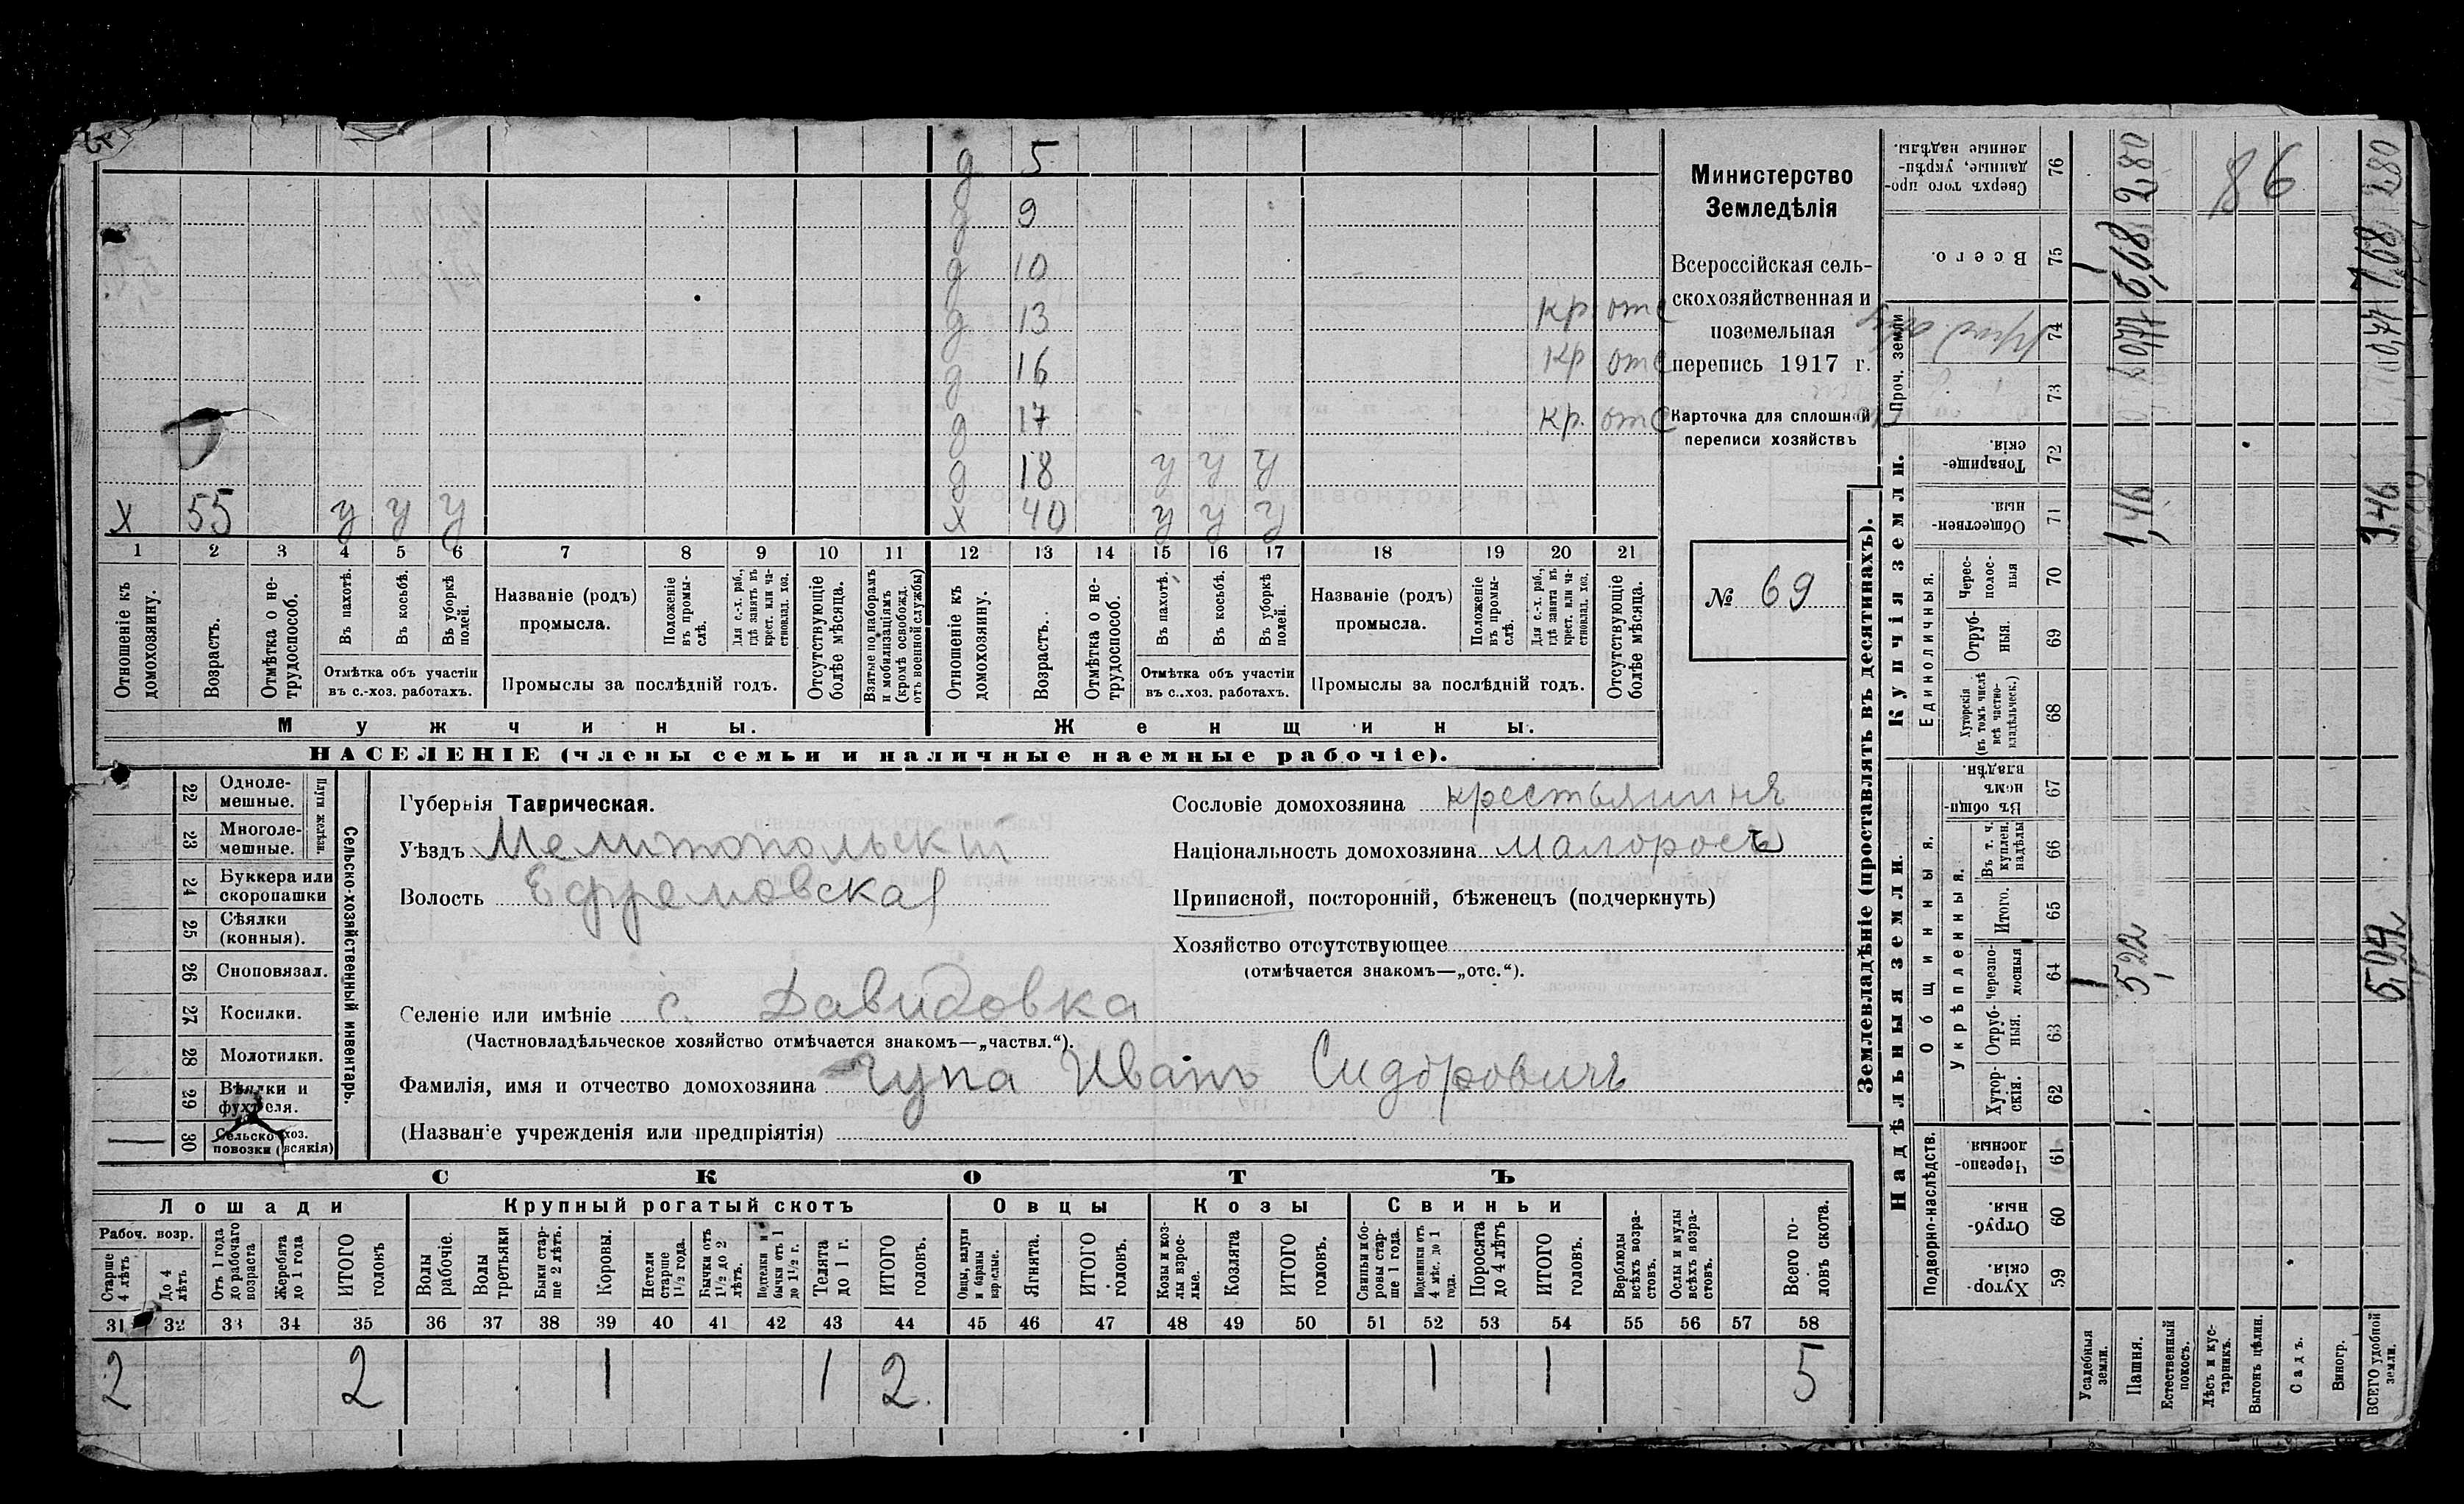 д 5
д 9
д 10
д 13 кр отс
д 16 кр отс
д 17 кр. отс
д 18 у у у
х 55 у у у х 40 у у у
1 2 3 4 5 6 7 8 9 10 11 12 13 14 15 16 17 18 19 20 21
Отношеніе къ домохозяину.
Возрастъ.
Отмѣтка о нетрудоспособ.
Въ пахотѣ.
Въ косьбѣ.
Въ уборкѣ полей.
Отмѣтка объ участіи
въ с.-хоз. работахъ.
Названіе (родъ)
промысла.
Положеніе въ промыслѣ.
Для с.-х. раб., гдѣ занятъ въ крест. или частновлад. хоз.
Промыслы за послѣдній годъ.
Отсутствующіе болѣе мѣсяца.
Взятые по наборамъ и мобилизаціямъ (кромѣ освобожд. отъ военной службы)
Отношеніе къ домохозяину.
Возрастъ.
Отмѣтка о нетрудоспособ.
Въ пахотѣ.
Въ косьбѣ.
Въ уборкѣ полей.
Отмѣтка объ участіи
въ с.-хоз. работахъ.
Названіе (родъ)
промысла.
Положеніе въ промыслѣ.
Для с.-х. раб., гдѣ занята въ крест. или частновлад. хоз.
Промыслы за послѣдній годъ.
Отсутствующіе болѣе мѣсяца.
Мужчины. Женщины.
НАСЕЛЕНІЕ (члены семьи и наличные наемные рабочіе).
Министерство
Земледѣлія
Всероссійская сель-
скохозяйственная и
поземельная
перепись 1917 г.
Карточка для сплошной
переписи хозяйствъ
№ 69
22 Одноле-
мешные.
23 Многоле-
мешные.
Плуги желѣзн.
24 Буккера или
скоропашки
25 Сѣялки
(конныя).
26 Сноповязал.
27 Косилки.
28 Молотилки.
29 Вѣялки и
фухтеля.
30 Сельско-хоз.
повозки (всякія)
Сельско-хозяйственный инвентарь.
Губернія Таврическая.
Уѣздъ Мелитопольскій
Волость Ефремовская
Селеніе или имѣніе с. Давидовка
(Частновладѣльческое хозяйство отмѣчается знакомъ—„частвл.“).
Фамилія, имя и отчество домохозяина Чупа Иванъ Сидоровичъ
(Названіе учрежденія или предпріятія)
Сословіе домохозяина крестьянинъ
Національность домохозяина малоросъ
Приписной, посторонній, бѣженецъ (подчеркнуть)
Хозяйство отсутствующее
(отмѣчается знакомъ—„отс.“).
СКОТЪ
Лошади Крупный рогатый скотъ Овцы Козы Свиньи
Рабоч. возр.
Старше 4 лѣтъ
До 4 лѣтъ
Отъ 1 года до рабочаго возраста
Жеребята до 1 года
ИТОГО головъ
Волы рабочіе.
Волы третьяки
Быки старше 2 лѣтъ.
Коровы.
Нетели старше 1½ года.
Бычки отъ 1½ до 2 лѣтъ.
Подтелки и бычки отъ 1 до 1½ г.
Телята до 1 г.
ИТОГО головъ.
Овцы, валухи и бараны взрослые.
Ягнята.
ИТОГО головъ.
Козы и козлы взрослые.
Козлята
ИТОГО головъ.
Свиньи боровы старше 1 года.
Подсвинки отъ 4 мѣс. до 1 года.
Поросята до 4 лѣтъ
ИТОГО головъ.
Верблюды всѣхъ возрастовъ.
Ослы и мулы всѣхъ возрастовъ.
Всего головъ скота.
31 32 33 34 35 36 37 38 39 40 41 42 43 44 45 46 47 48 49 50 51 52 53 54 55 56 57 58
2 2 1 1 2. 1 1 5
Землевладѣніе (проставлять въ десятинахъ).
Сверхъ того проданные, укрѣпленные надѣлы. 76
Всего. 75
Проч. земли 74
73
Купчія земли.
Товарищескія. 72
Общественныя 71
Единоличныя.
Чересполосныя 70
Отрубныя. 69
Хуторскія (въ томъ числѣ всѣ частновладѣльческ.) 68
Надѣльныя земли.
Общинныя.
Въ общинномъ владѣн. 67
Въ т. ч. куплен. надѣлы 66
Укрѣпленныя.
Итого. 65
Черезполосныя 64
Отрубныя. 63
Хуторскія. 62
Подворно-наслѣдств.
Черезполосныя 61
Отрубныя. 60
Хуторскія. 59
Усадебныя земли.
Пашня.
Естественный покосъ.
Лѣсъ и кустарникъ.
Выгонъ цѣлин.
Садъ.
Виногр.
ВСЕГО удобной земли.
2,80
86
2,80
7,68
1,46
5,22